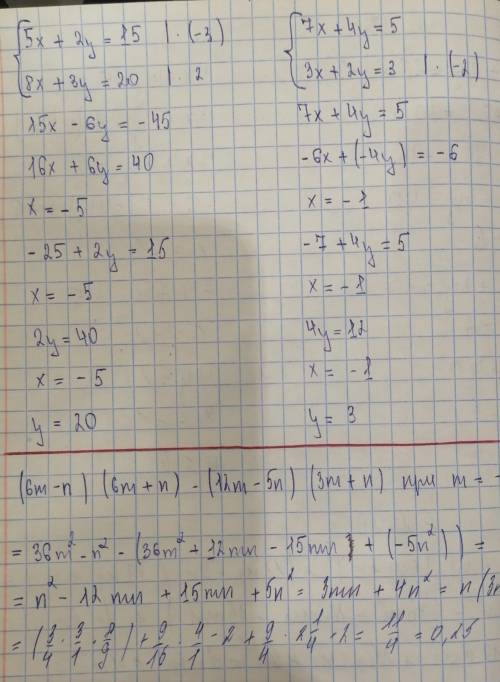 5x + 2y = 15 | · (-3)
8x + 3y = 20 | · 2
15x - 6y = -45
16x + 6y = 40
x = -5
-25 + 2y = 15
x = -5
2y = 40
x = -5
y = 20
7x + 4y = 5
3x + 2y = 3 | · (-2)
7x + 4y = 5
-6x + (-4y) = -6
x = -1
-7 + 4y = 5
x = -1
4y = 12
x = -1
y = 3
(6m - n) (6m + n) - (12m - 5n) (3m + n) при m = -
= 36m² - n² - (36m² + 12mn - 15mn + (-5n²)) =
= n² - 12mn + 15mn + 5n² = 3mn + 4n² = n (3m
= (3/4 · 3/1 · 2/9) + 9/16 · 4/1 - 2 + 9/4 · 2 1/4 · 2 = 11/4 = 0,25